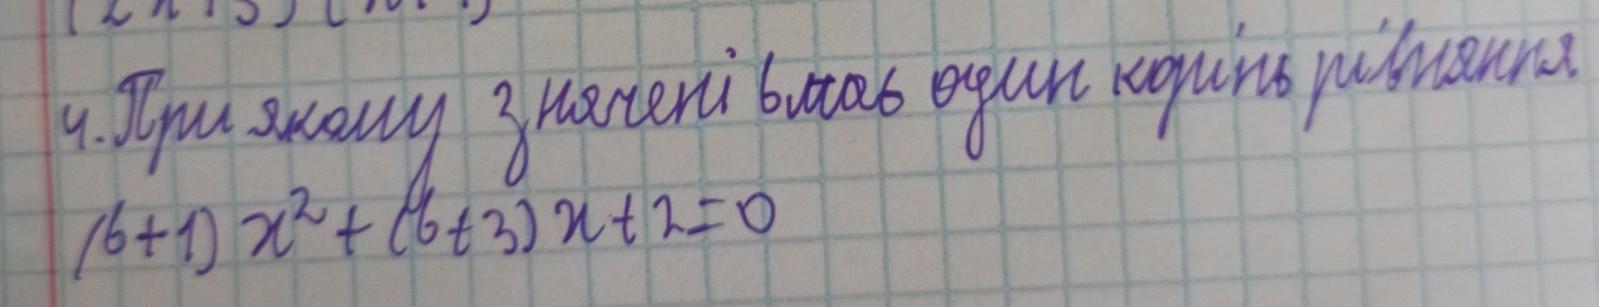 4. При якому значені b має один корінь рівняння
(b+1) x² + (b+3) x + 2 = 0